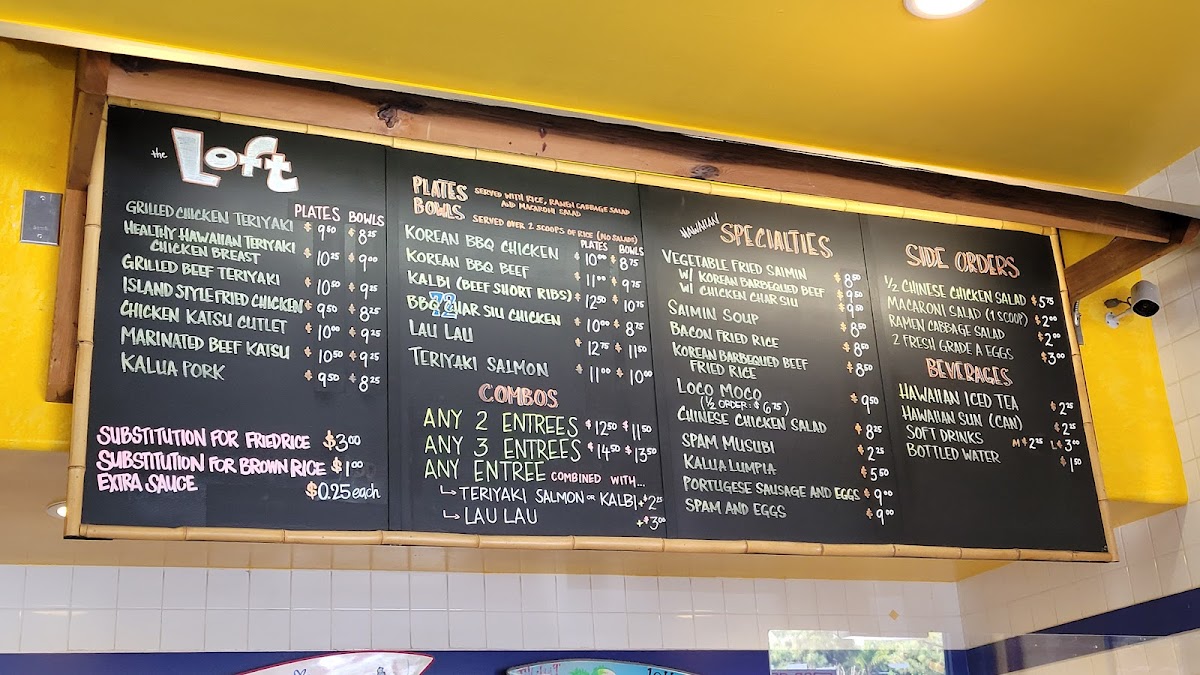 the Loft
PLATES BOWLS
GRILLED CHICKEN TERIYAKI $9.50 $8.25
HEALTHY HAWAIIAN TERIYAKI
CHICKEN BREAST $10.25 $9.00
GRILLED BEEF TERIYAKI $10.50 $9.25
ISLAND STYLE FRIED CHICKEN $9.50 $8.25
CHICKEN KATSU CUTLET $10.00 $9.25
MARINATED BEEF KATSU $10.50 $9.25
KALUA PORK $9.50 $8.25
SUBSTITUTION FOR FRIED RICE $3.00
SUBSTITUTION FOR BROWN RICE $1.00
EXTRA SAUCE $0.25 each
PLATES SERVED WITH RICE, RAMEN CABBAGE SALAD
AND MACARONI SALAD
BOWLS SERVED OVER 2 SCOOPS OF RICE (NO SALADS)
PLATES BOWLS
KOREAN BBQ CHICKEN $10.00 $8.75
KOREAN BBQ BEEF $11.00 $9.75
KALBI (BEEF SHORT RIBS) $12.50 $10.75
BBQ CHAR SIU CHICKEN $10.00 $8.75
LAU LAU $12.75 $11.50
TERIYAKI SALMON $11.00 $10.00
COMBOS
ANY 2 ENTREES $12.50 $11.50
ANY 3 ENTREES $14.50 $13.50
ANY ENTREE COMBINED WITH...
TERIYAKI SALMON OR KALBI +$2.25
LAU LAU +$3.00
HAWAIIAN SPECIALTIES
VEGETABLE FRIED SAIMIN $8.50
W/ KOREAN BARBEQUED BEEF $9.50
W/ CHICKEN CHAR SIU $9.50
SAIMIN SOUP $8.50
BACON FRIED RICE $8.50
KOREAN BARBEQUED BEEF
FRIED RICE $8.50
LOCO MOCO $9.50
(½ ORDER: $6.75)
CHINESE CHICKEN SALAD $8.25
SPAM MUSUBI $2.25
KALUA LUMPIA $5.50
PORTUGESE SAUSAGE AND EGGS $9.00
SPAM AND EGGS $9.00
SIDE ORDERS
½ CHINESE CHICKEN SALAD $5.75
MACARONI SALAD (1 SCOOP) $2.00
RAMEN CABBAGE SALAD $2.00
2 FRESH GRADE A EGGS $3.00
BEVERAGES
HAWAIIAN ICED TEA $2.25
HAWAIIAN SUN (CAN) $2.25
SOFT DRINKS M $2.25 L $3.00
BOTTLED WATER $1.50